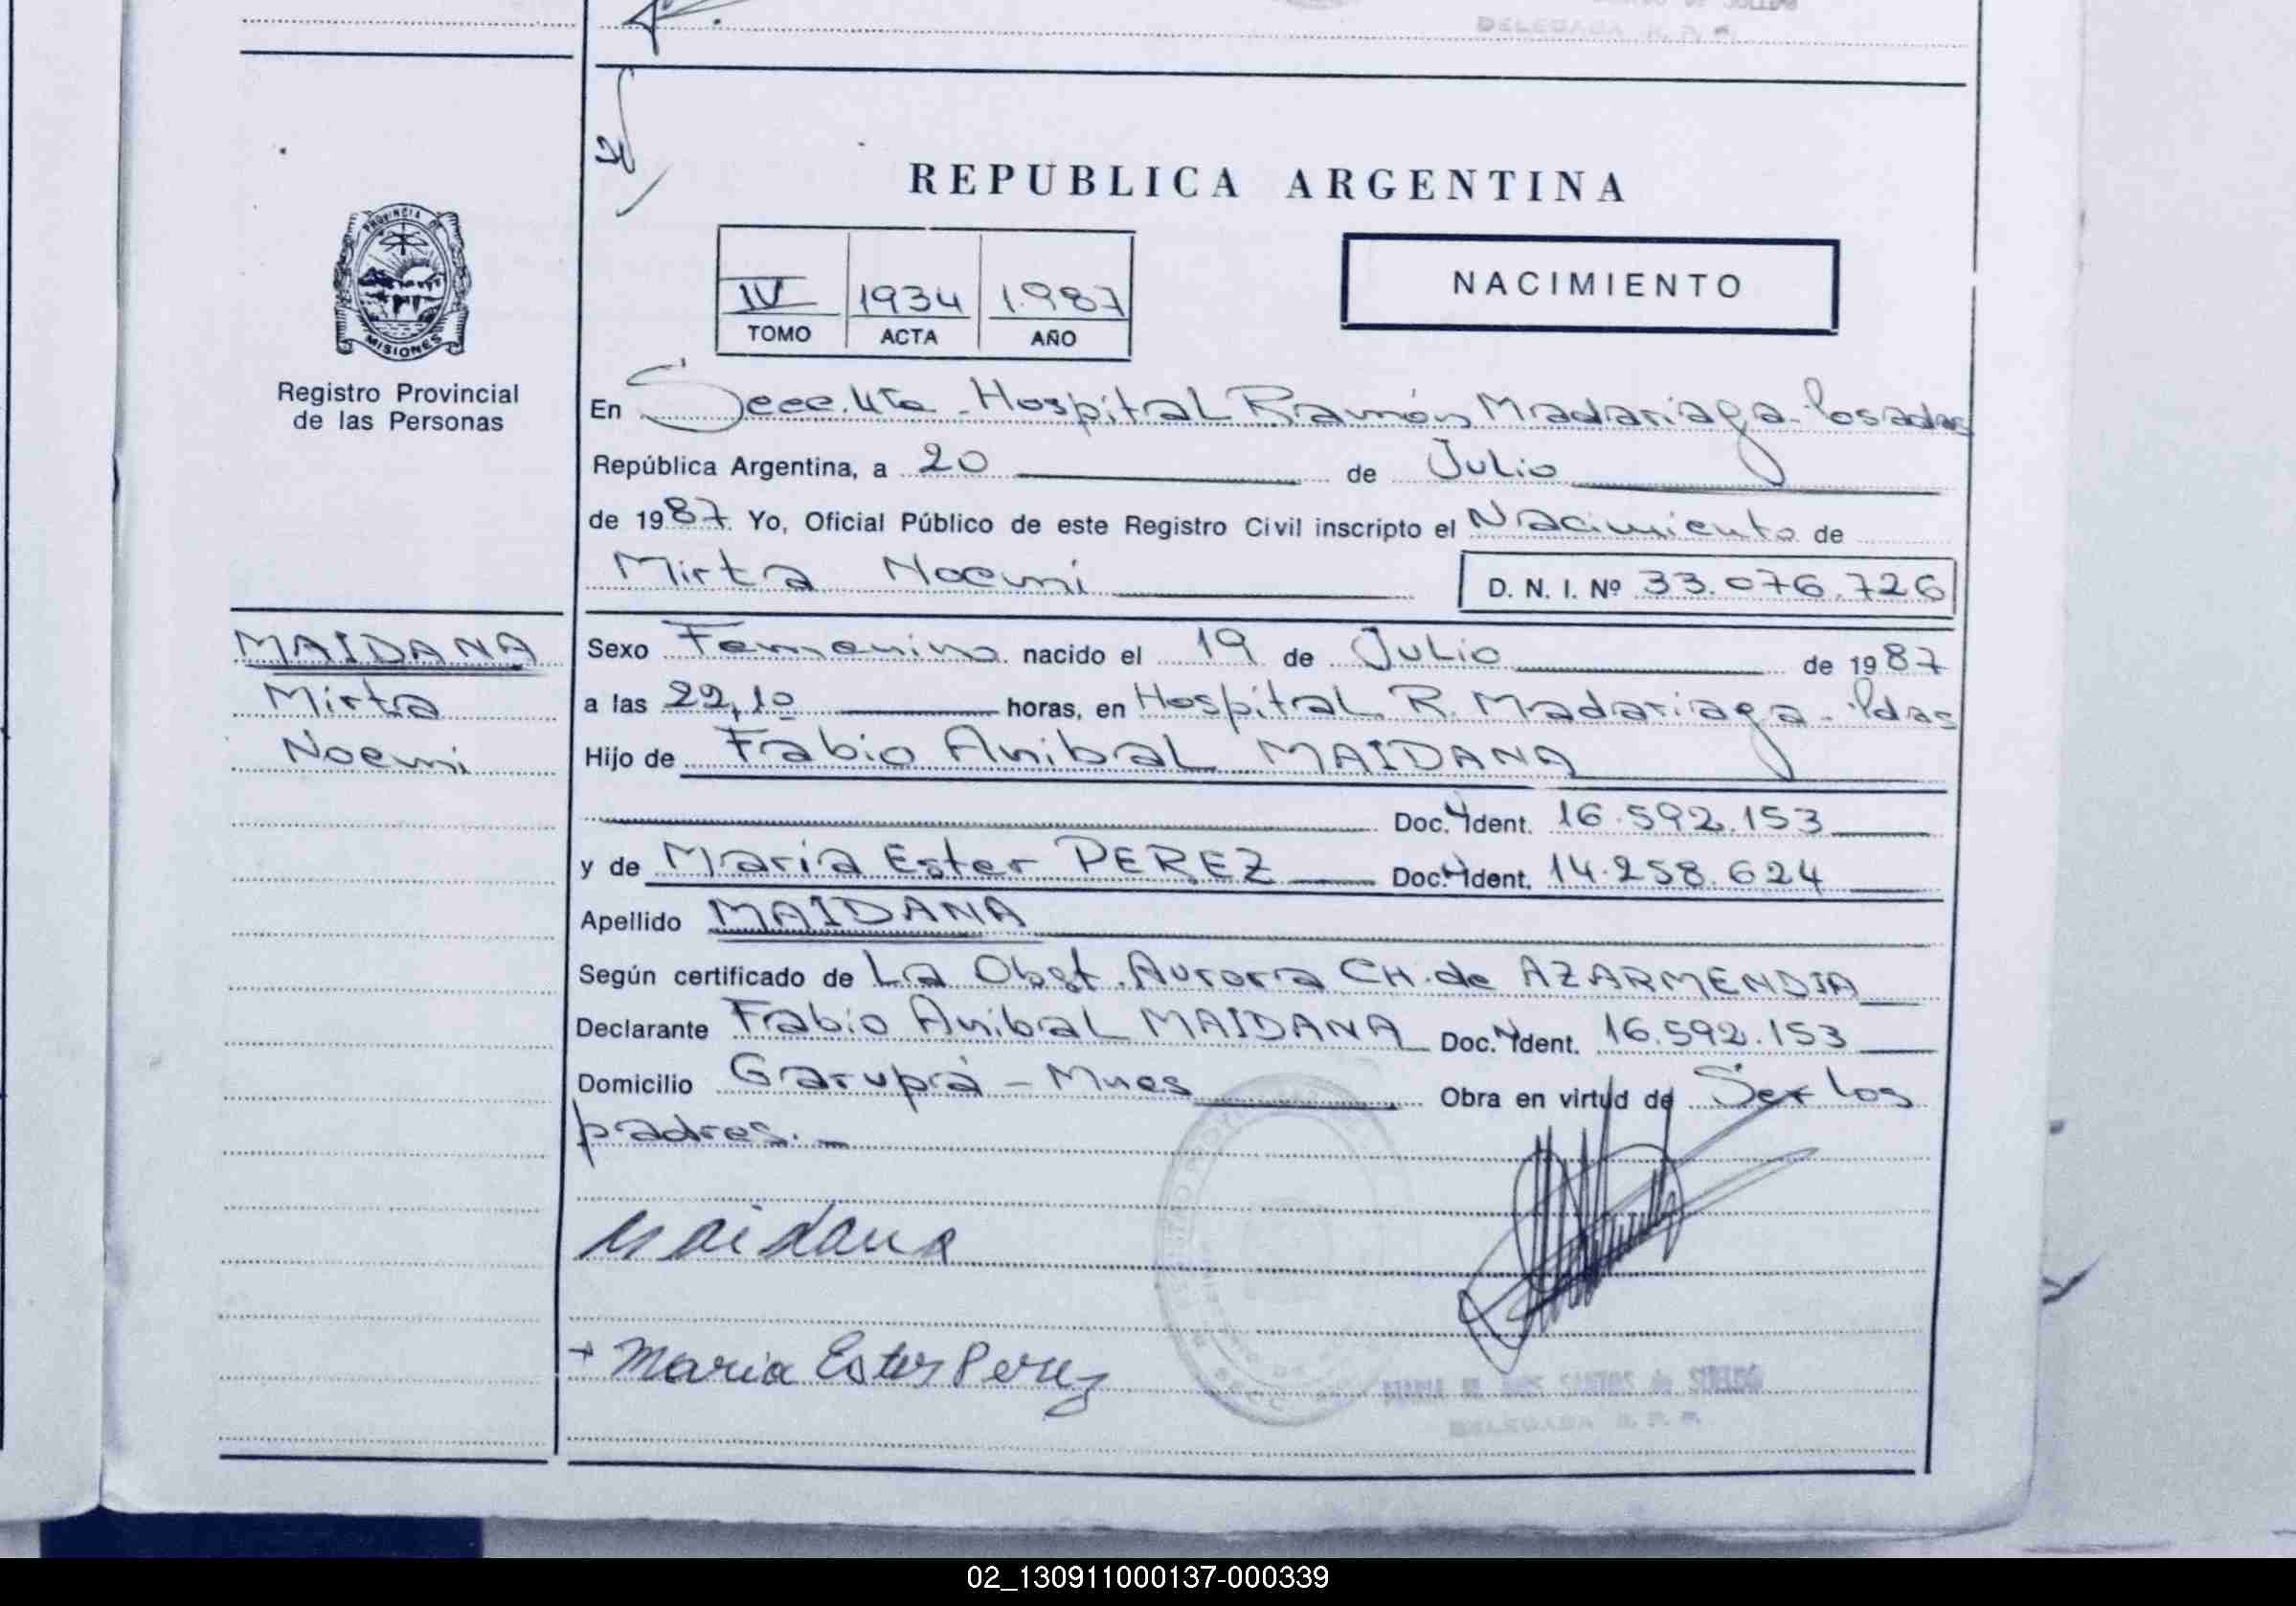 DELEGADA R. P. P.
REPUBLICA ARGENTINA
PROVINCIA DE
MISIONES
Registro Provincial
de las Personas
IV 1934 1.987
TOMO ACTA AÑO
NACIMIENTO
En Secc. 4ta - Hospital Ramón Madariaga - Posadas
República Argentina, a 20 de Julio
de 1987. Yo, Oficial Público de este Registro Civil inscripto el Nacimiento de
Mirta Noemí D. N. I. Nº 33.076.726
MAIDANA
Mirta
Noemi
Sexo Femenino nacido el 19 de Julio de 1987
a las 22,10 horas, en Hospital R. Madariaga - Pdas
Hijo de Fabio Anibal MAIDANA
Doc. Ident. 16.592.153
y de María Ester PEREZ Doc. Ident. 14.258.624
Apellido MAIDANA
Según certificado de La Obst. Aurora CH. de AZARMENDIA
Declarante Fabio Anibal MAIDANA Doc. Ident. 16.592.153
Domicilio Garupá - Mnes Obra en virtud de Ser los
padres. -
Maidana
+ Maria Ester Perez
DELEGADA R. P. P.
02_130911000137-000339